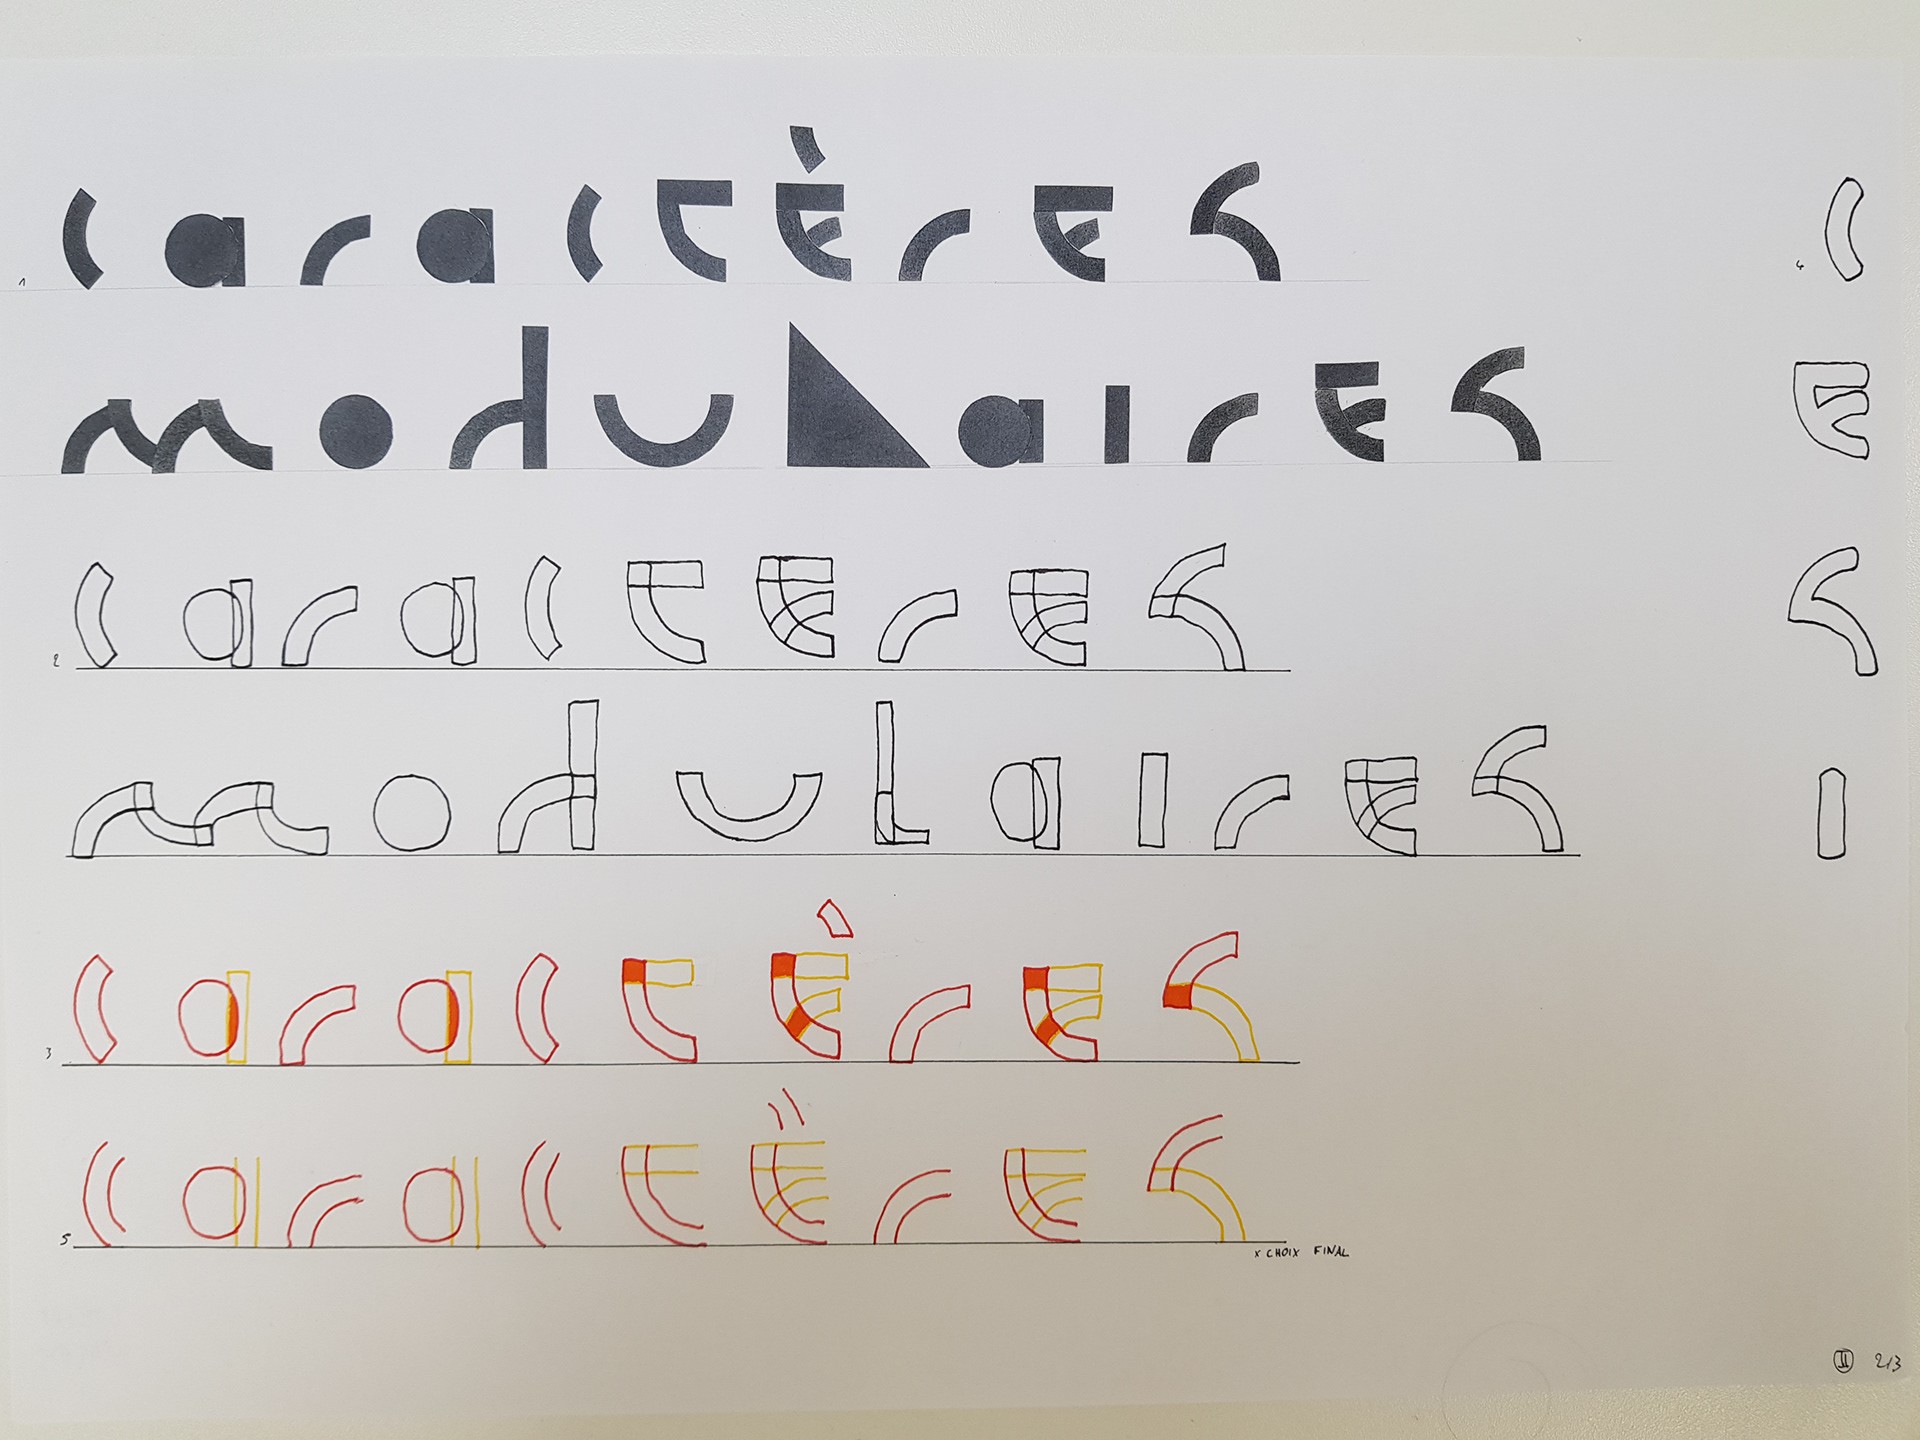 1 caractères
modulaires
2 caracteres
modulaires
3 caractères
5 caractères
x CHOIX FINAL
4 c
e
s
i
II 2/3